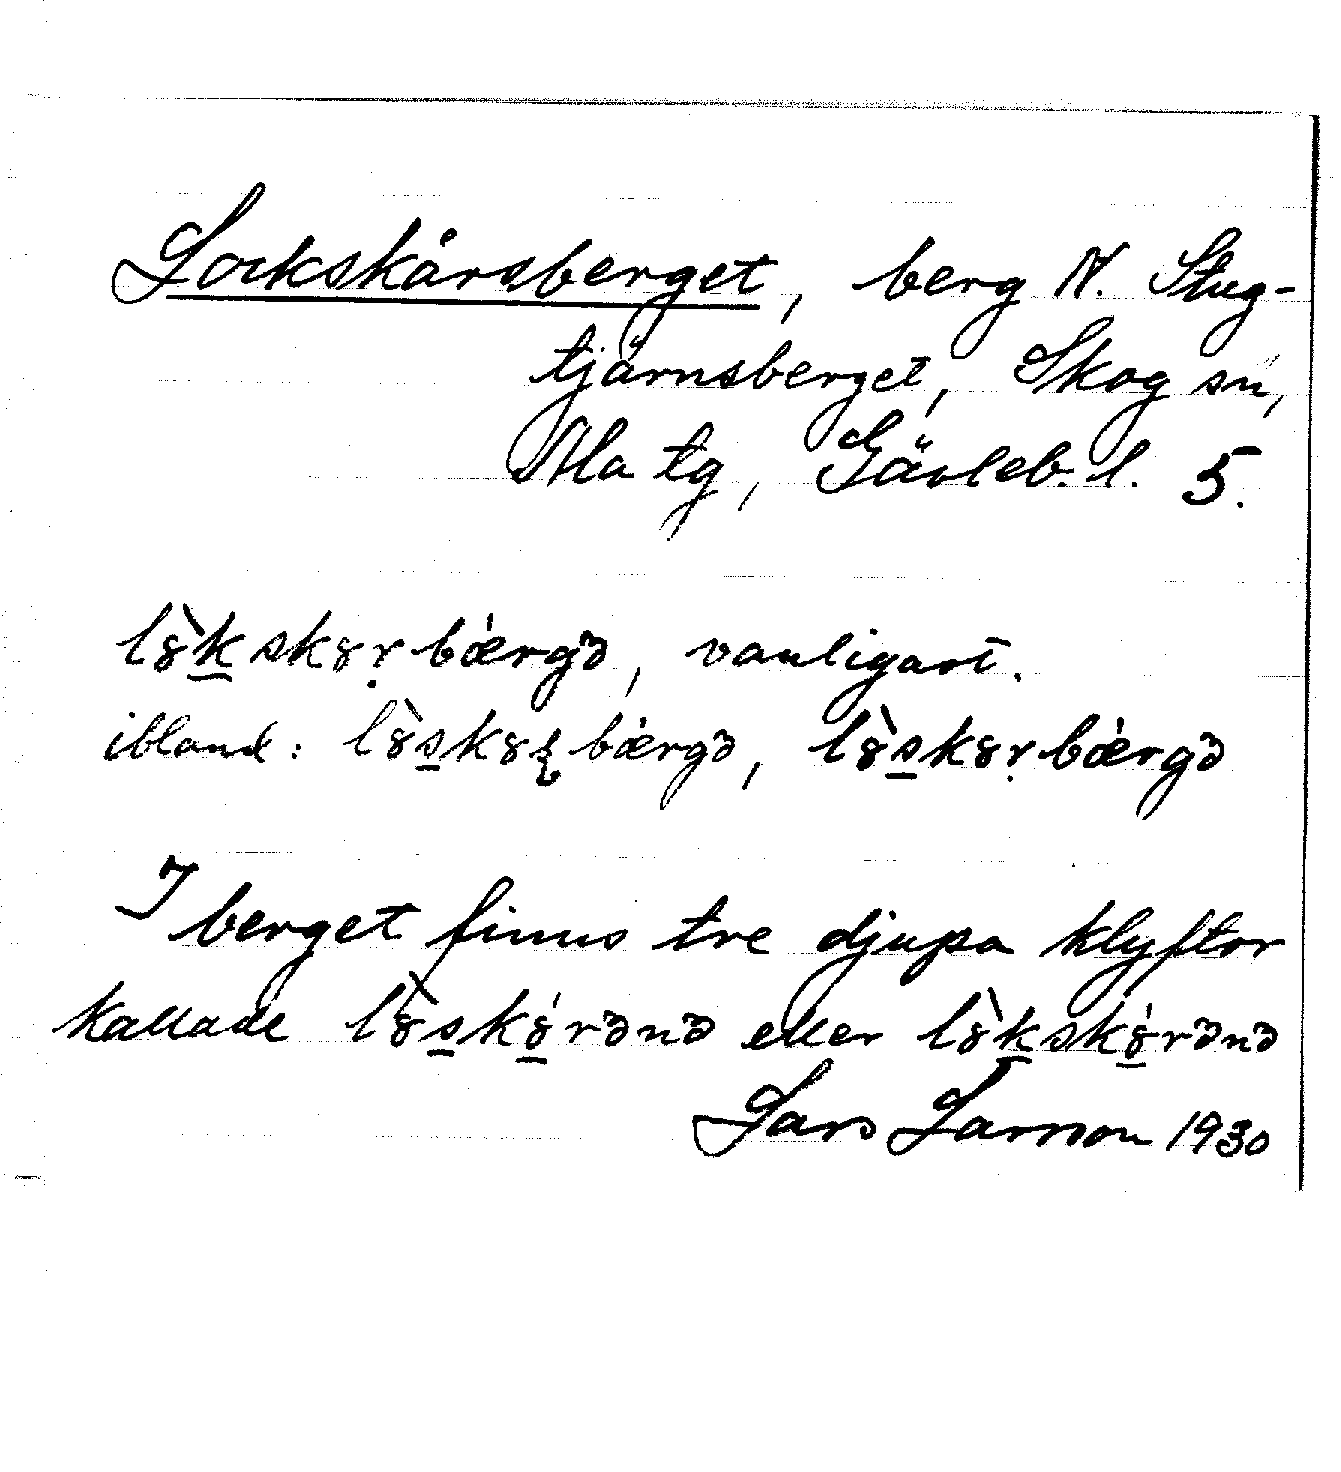 Lockskårsberget, berg N. Stug-
tjärnsberget, Skog sn,
Ala tg, Gävleb. l. 5.
lȣ̀k̲skȣṛbǽrgə̄, vanligast.
ibland: lȣ̀s̲kȣʂbǽrgə̄, lȣ̀s̲kȣṛbǽrgə̄
I berget finns tre djupa klyftor
kallade lȣ̀s̲kȣ̲́rənə eller lȣ̀k̲skȣ̲́rənə
Lars Larsson 1930